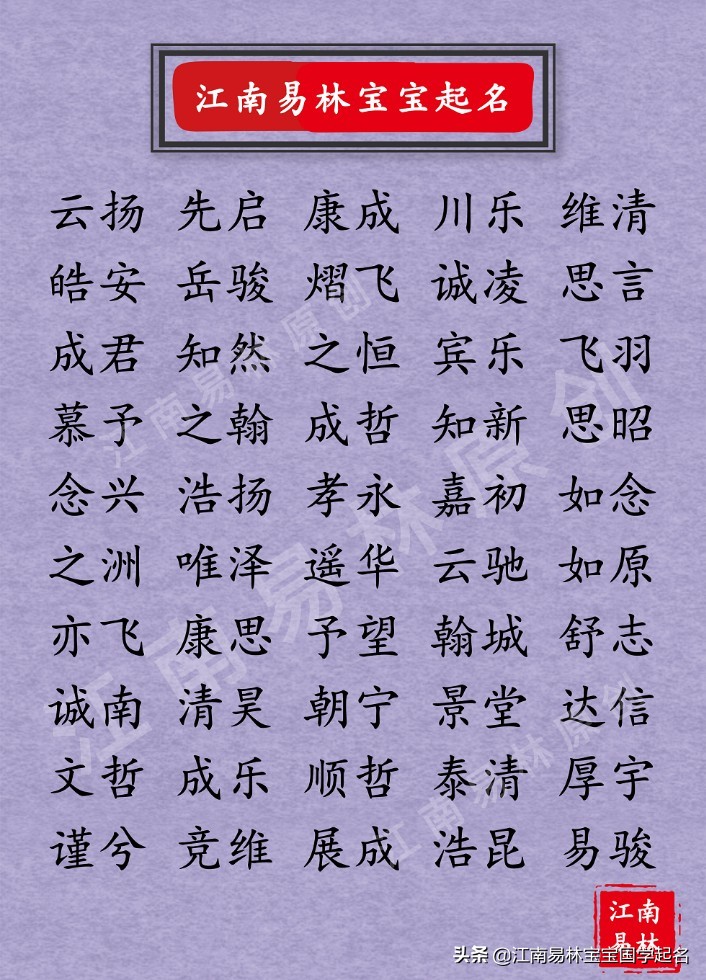 江南易林宝宝起名
云扬 先启 康成 川乐 维清
皓安 岳骏 熠飞 诚凌 思言
成君 知然 之恒 宾乐 飞羽
慕予 之翰 成哲 知新 思昭
念兴 浩扬 孝永 嘉初 如念
之洲 唯泽 遥华 云驰 如原
亦飞 康思 予望 翰城 舒志
诚南 清昊 朝宁 景堂 达信
文哲 成乐 顺哲 泰清 厚宇
谨兮 竞维 展成 浩昆 易骏
江南易林原创
江南易林原创
江南易林原创
江南
易林
头条 @江南易林宝宝国学起名